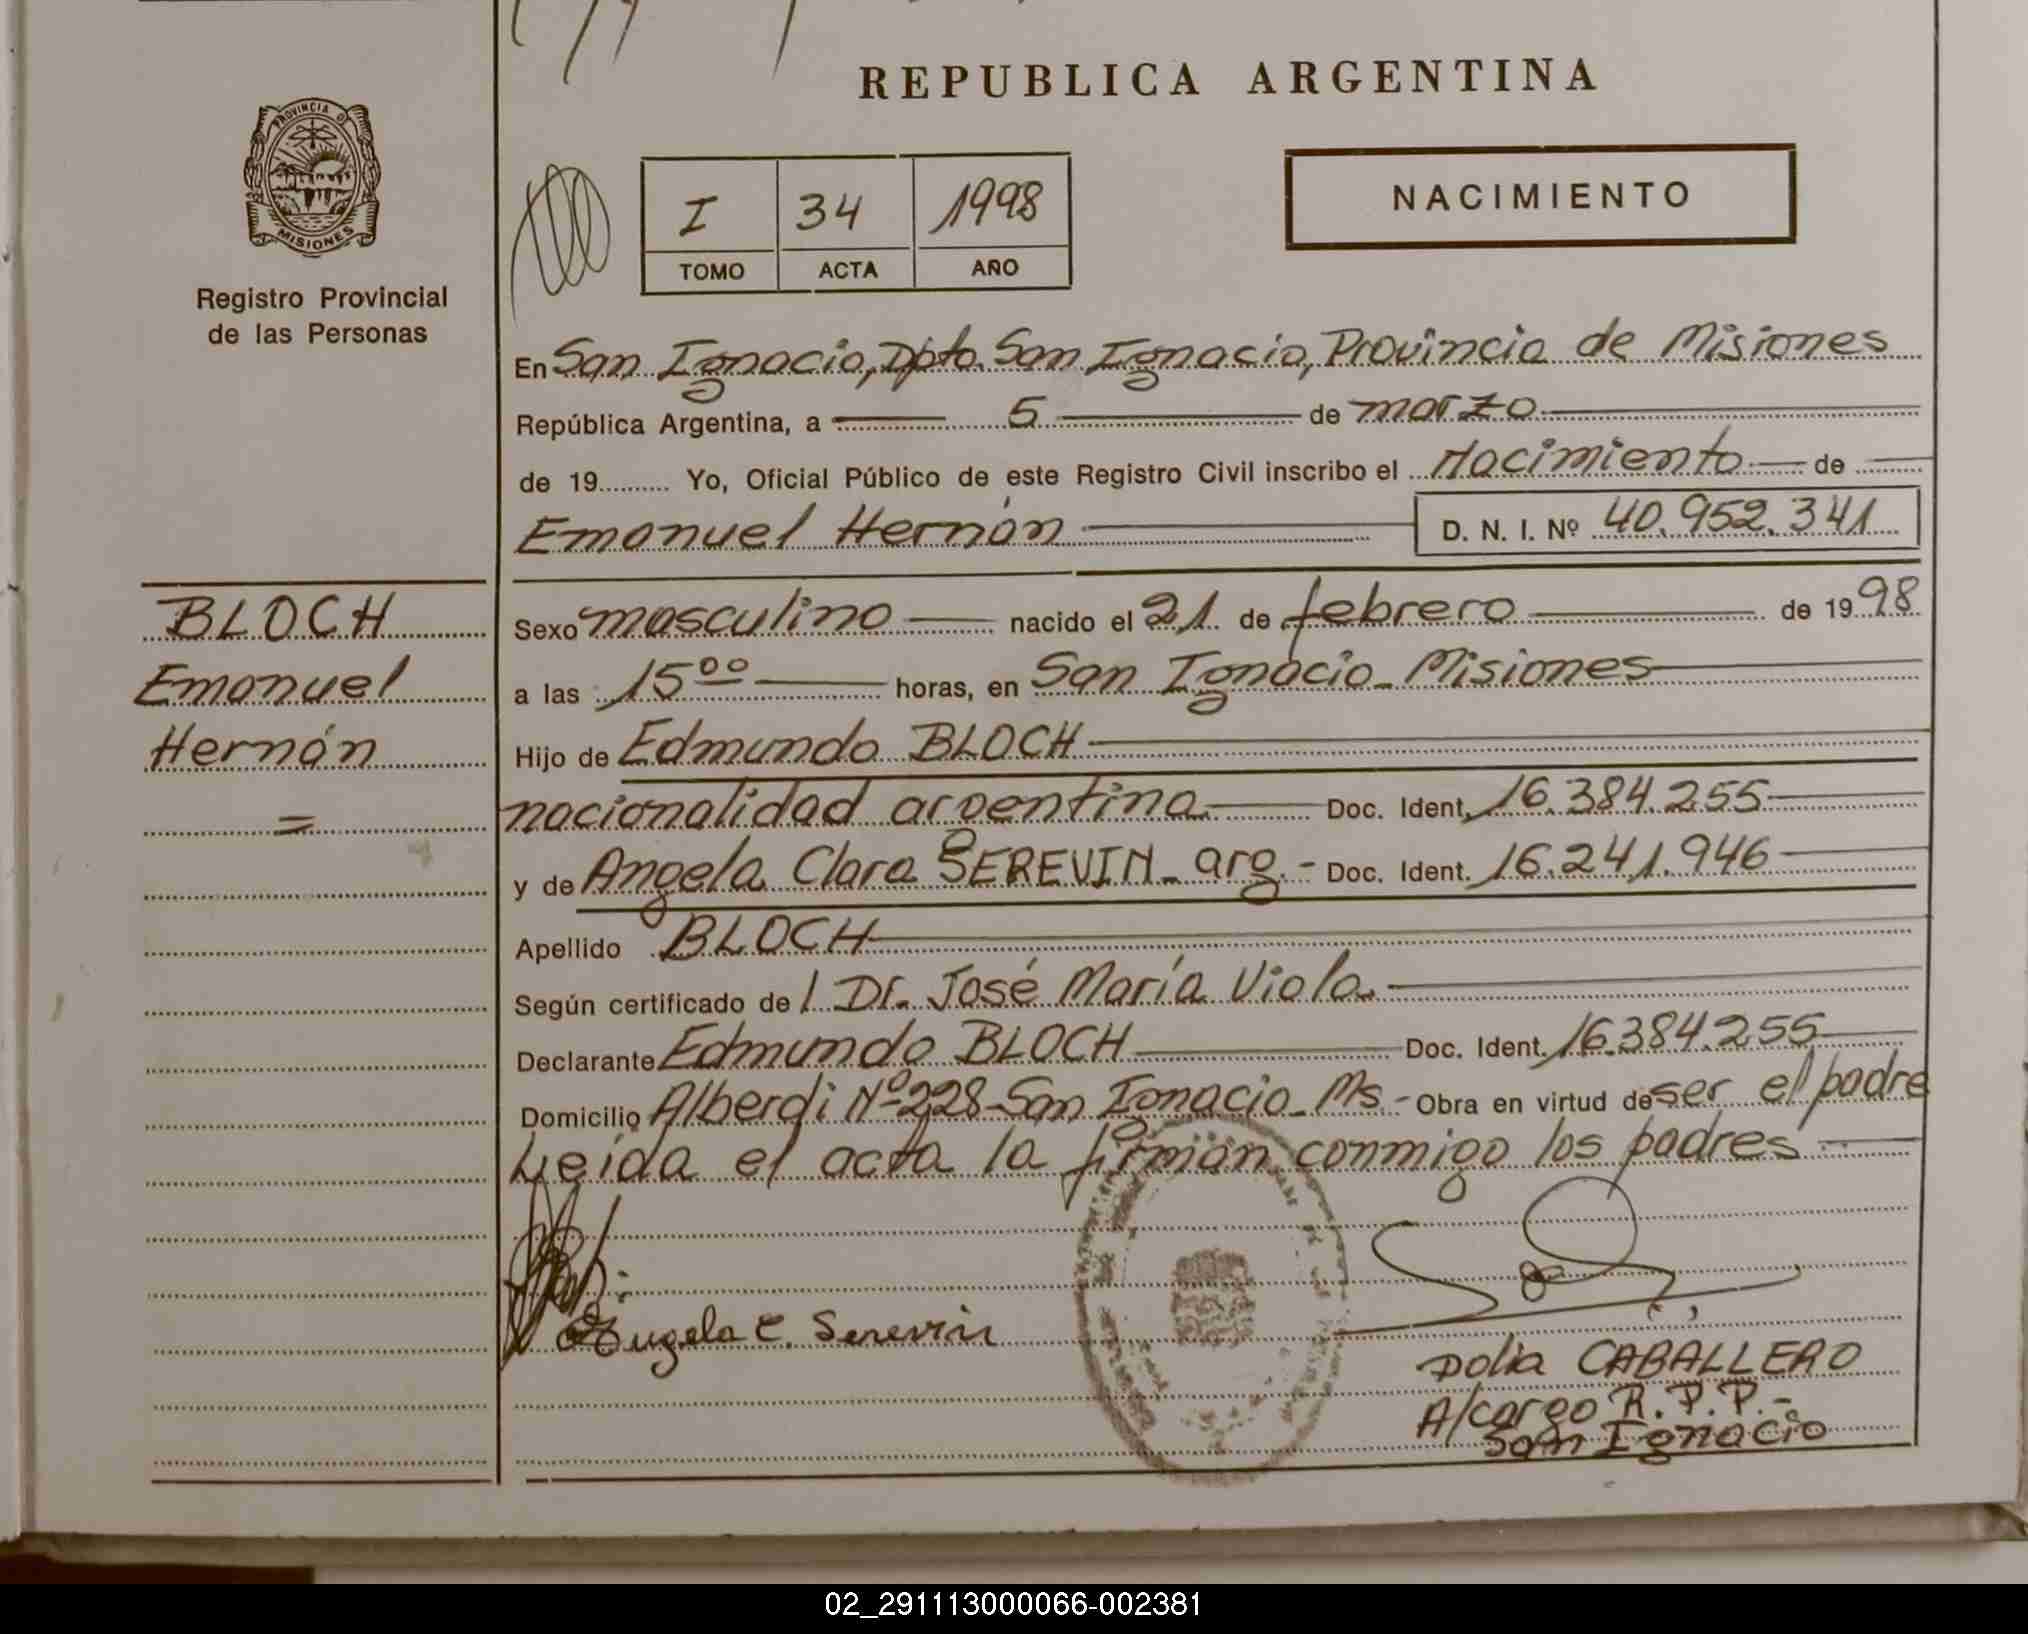 REPUBLICA ARGENTINA
PROVINCIA D
MISIONES
Registro Provincial
de las Personas
I 34 1998
TOMO ACTA AÑO
NACIMIENTO
En San Ignacio, Dpto. San Ignacio, Provincia de Misiones
República Argentina, a 5 de marzo
de 19.......... Yo, Oficial Público de este Registro Civil inscribo el Nacimiento de
Emanuel Hernán D. N. I. Nº 40.952.341
BLOCH
Emanuel
Hernán
=
Sexo masculino nacido el 21 de febrero de 1998
a las 15⁰⁰ horas, en San Ignacio - Misiones
Hijo de Edmundo BLOCH
nacionalidad argentina Doc. Ident. 16.384.255
y de Angela Clara SEREVIN - arg. - Doc. Ident. 16.241.946
Apellido BLOCH
Según certificado de l Dr. José María Viola
Declarante Edmundo BLOCH Doc. Ident. 16.384.255
Domicilio Alberdi Nº 228 - San Ignacio - Ms. - Obra en virtud de ser el padre
Leída el acta la firman conmigo los padres
Angela C. Serevin
Dolia CABALLERO
A/cargo R.P.P.-
San Ignacio
02_291113000066-002381